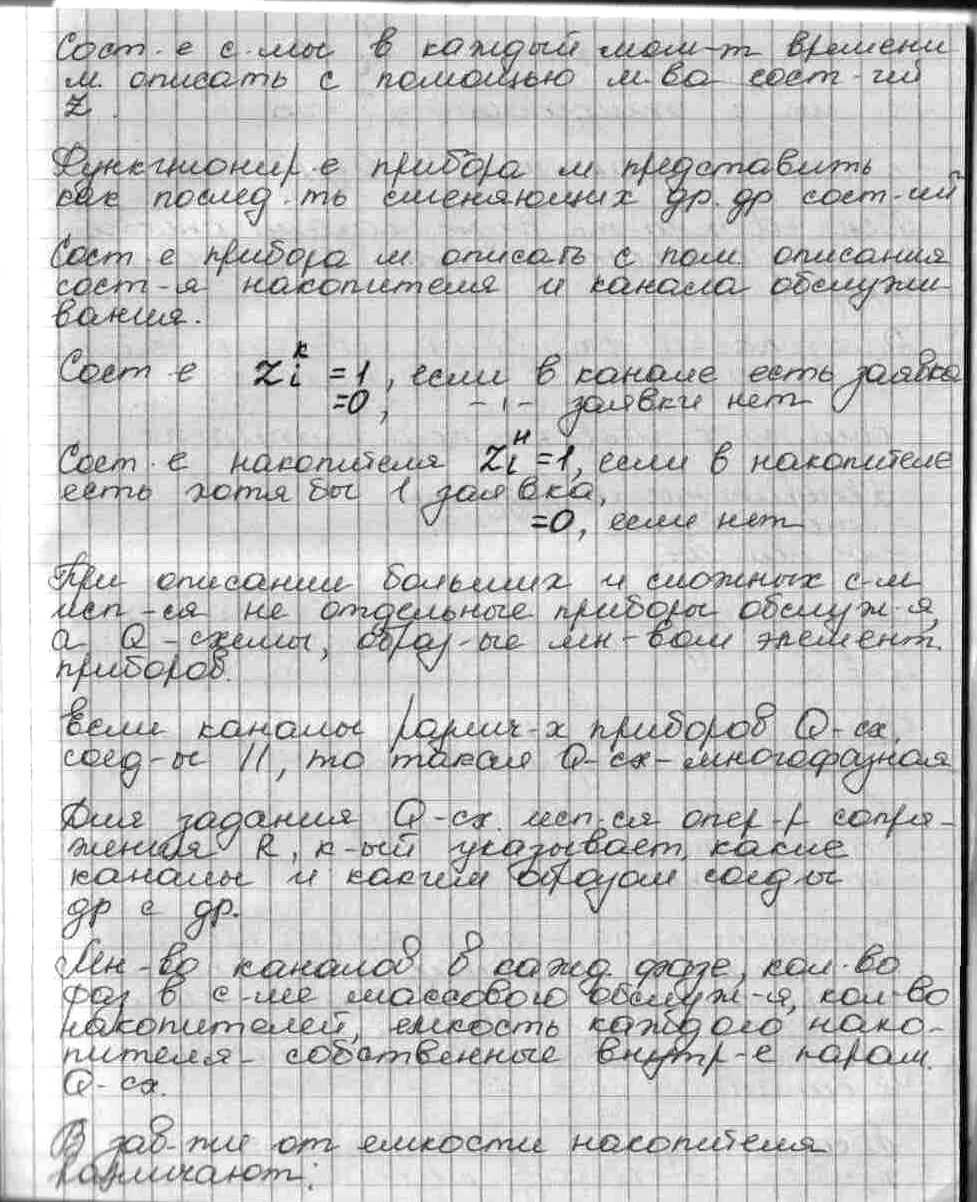 Сост-е с-мы в каждый мом-т времени
м. описать с помощью м-ва сост-ий
Z.
Функционир-е прибора м представить
как послед-ть сменяющих др. др сост-ий
Сост-е прибора м. описать с пом описания
сост-я накопителя и канала обслужи
вания.
Сост-е Zᵢᴷ =1, если в канале есть заявка
=0, -"- заявки нет
Сост-е накопителя Zᵢᴴ =1, если в накопителе
есть хотя бы 1 заявка,
=0, если нет
При описании больших и сложных с-м
исп-ся не отдельные приборы обслуж-я,
а Q-схемы, образ-ые мн-вом элемент.
приборов.
Если каналы различ-х приборов Q-сх.
соед-ы //, то такая Q-сх-многофазная
Для задания Q-сх. исп-ся опер-р сопря-
жения R, к-ый указывает, какие
каналы и каким образом соед-ы
др с др.
Мн-во каналов в кажд. фазе, кол-во
фаз в с-ме массового обслуж-я, кол-во
накопителей, емкость каждого нако-
пителя- собственные внутр-е парам.
Q-сх.
В зав-ти от емкости накопителя
различают: